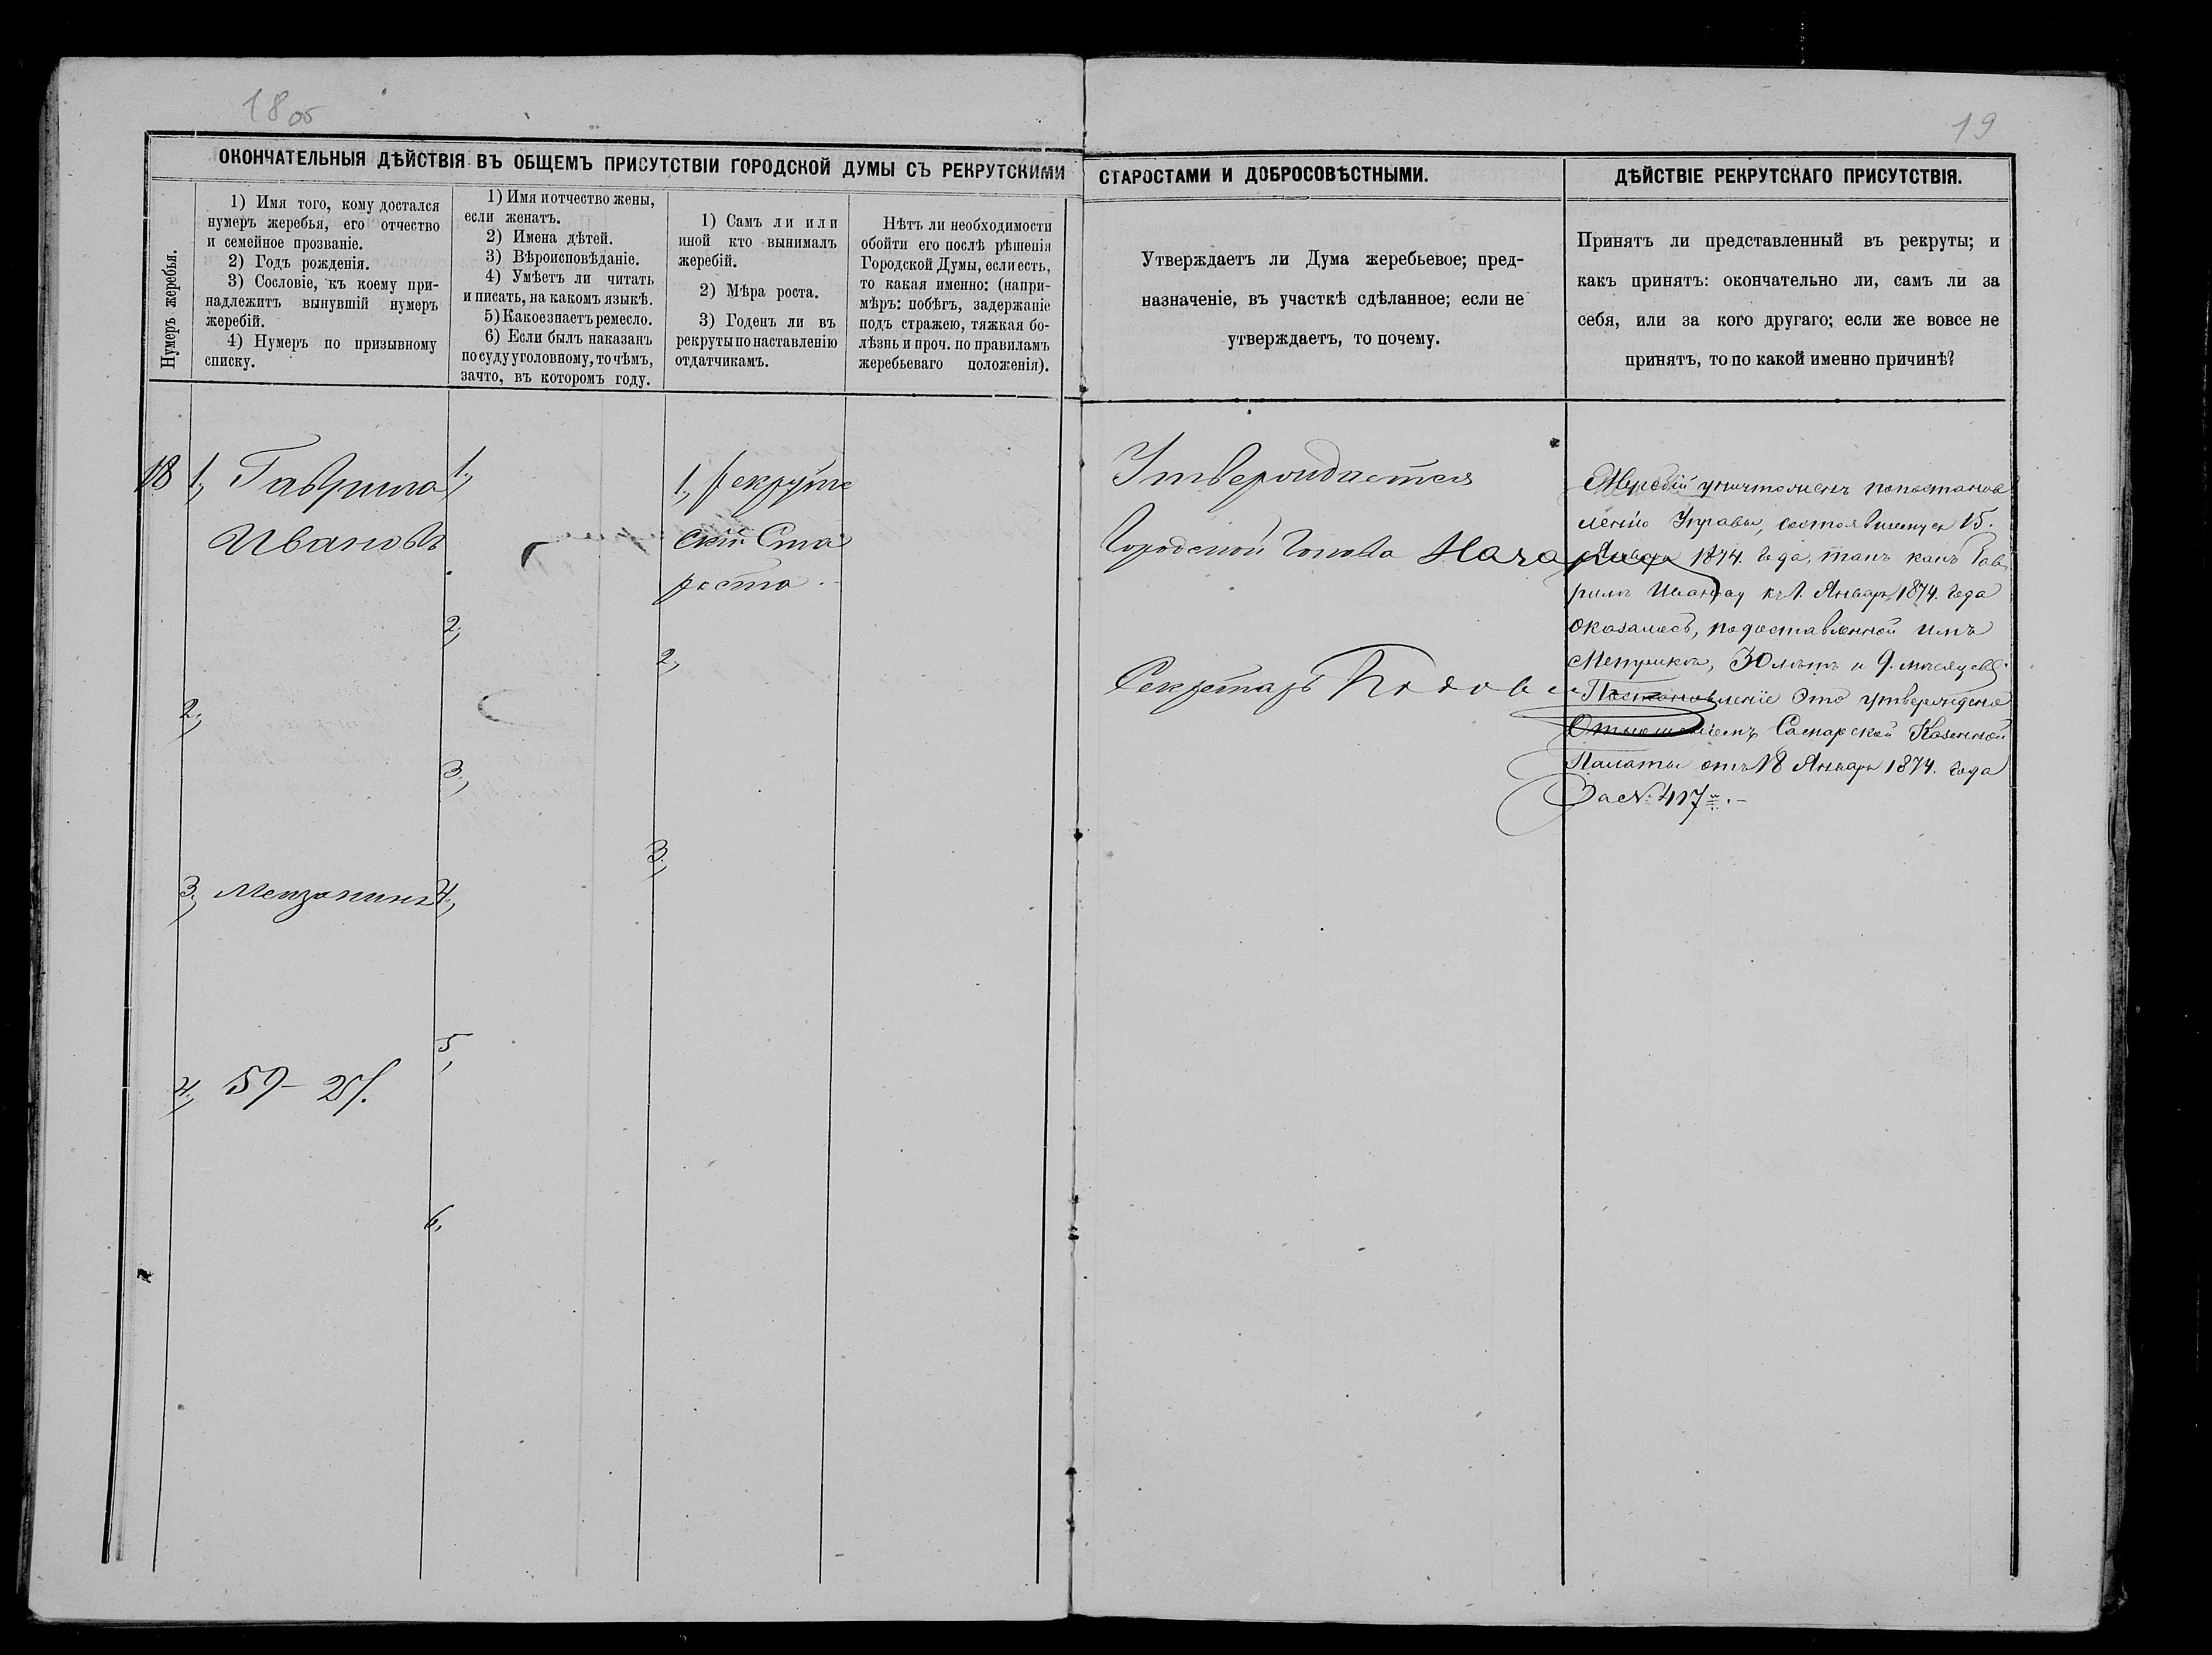 18 об
19
ОКОНЧАТЕЛЬНЫЯ ДѢЙСТВІЯ ВЪ ОБЩЕМЪ ПРИСУТСТВІИ ГОРОДСКОЙ ДУМЫ СЪ РЕКРУТСКИМИ
Нумеръ жеребья.
1) Имя того, кому достался
нумеръ жеребья, его отчество
и семейное прозваніе.
2) Годъ рожденія.
3) Сословіе, къ коему при-
надлежитъ вынувшій нумеръ
жеребій.
4) Нумеръ по призывному
списку.
1) Имя и отчество жены,
если женатъ.
2) Имена дѣтей.
3) Вѣроисповѣданіе.
4) Умѣетъ ли читать
и писать, на какомъ языкѣ.
5) Какое знаетъ ремесло.
6) Если былъ наказанъ
по суду уголовному, то чѣмъ,
за что, въ которомъ году.
1) Самъ ли или
иной кто вынималъ
жеребій.
2) Мѣра роста.
3) Годенъ ли въ
рекруты по наставленію
отдатчикамъ.
Нѣтъ ли необходимости
обойти его послѣ рѣшенія
Городской Думы, если есть,
то какая именно: (напри-
мѣръ: побѣгъ, задержаніе
подъ стражею, тяжкая бо-
лѣзнь и проч. по правиламъ
жеребьеваго положенія).
СТАРОСТАМИ И ДОБРОСОВѢСТНЫМИ.
Утверждаетъ ли Дума жеребьевое; пред-
назначеніе, въ участкѣ сдѣланное; если не
утверждаетъ, то почему.
ДѢЙСТВІЕ РЕКРУТСКАГО ПРИСУТСТВІЯ.
Принятъ ли представленный въ рекруты; и
какъ принятъ: окончательно ли, самъ ли за
себя, или за кого другаго; если же вовсе не
принятъ, то по какой именно причинѣ?
18
1., Гаврила
Ивановъ
2.,
3., Мещанинъ
4., 59 – 25/.
1.,
2.,
3.,
4.,
5.,
6.,
1., Рекрут
скій Ста
роста.
2.,
3.,
Утверждается
Городской Голова
Секретарь
Жеребій уничтоженъ по постанов
ленію Управы, состоявшемуся 15.
Января 1874. года, такъ какъ Гав
рилѣ Иванову къ 1. Январю 1874. года
оказалось, по доставленной имъ
Метрикѣ, 30 лѣтъ и 9. мѣсяцевъ.
Постановленіе это утверждено
Отношеніемъ Самарской Казенной
Палаты отъ 18 Января 1874. года
За № 417м.–